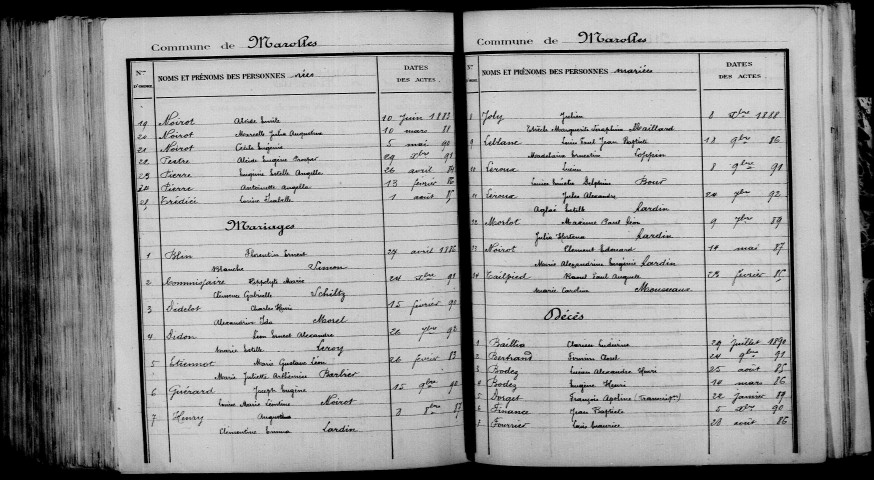 Commune de Marolles
Nos D'ORDRE
NOMS ET PRÉNOMS DES PERSONNES nées
DATES DES ACTES
19 Noirot Alcide Emile 10 juin 1883
20 Noirot Marcelle Julia Augustine 10 mars 88
21 Noirot Cécile Eugénie 5 mai 90
22 Alcide Eugène Prosper 29 Xbre 91
23 Pierre Eugénie Estelle Angèle 26 avril 84
24 Pierre Antoinette Angella 13 février 86
25 Louise Isabelle 1 août 85
Mariages
1 Blin Florentin Ernest 27 avril 1886
Blanche Simon
2 Commissaire Hippolyte Marie 24 Xbre 91
Clémence Gabrielle Schiltz
3 Didelot Charles Henri 15 février 90
Alexandrine Ida Morel
4 Didon Léon Ernest Alexandre 26 7bre 92
Estelle Leroy
5 Etiennot Marie Gustave Léon 26 février 83
Marie Juliette Barbier
6 Guérard Joseph Eugène 15 9bre 90
Louise Marie Léontine Noirot
7 Henry Augustin 3 8bre 87
Clémentine Emma Lardin
Commune de Marolles
Nos D'ORDRE
NOMS ET PRÉNOMS DES PERSONNES mariées
DATES DES ACTES
8 Joly Julien 8 Xbre 1888
Marguerite Séraphine Maillard
9 Leblanc Louis Paul Jean Baptiste 18 9bre 86
Madeleine Ernestine Coppin
10 Leroux Lucien 8 9bre 91
Louise Ernestine Delphine Bour
11 Leroux Jules Alexandre 24 7bre 92
Aglaé Estelle Lardin
22 Morlot Maxime Paul Léon 9 7bre 89
Julia Hortense Lardin
23 Noirot Clément Edouard 14 mai 87
Marie Alexandrine Eugénie Lardin
24 Tailpied Raoul Paul Auguste 23 février 85
Marie Caroline Mousseaux
Décès
1 Bailly Clarisse Ludivine 29 juillet 1890
2 Bertrand 24 9bre 91
3 Bodez Lucien Alexandre Henri 25 août 85
4 Bodez Eugène Henri 14 mars 86
5 Dorget François Apoline (Transcripon) 22 janvier 89
6 Finance Jean Baptiste 5 Xbre 90
7 Fourrier Louis Maurice 23 août 86